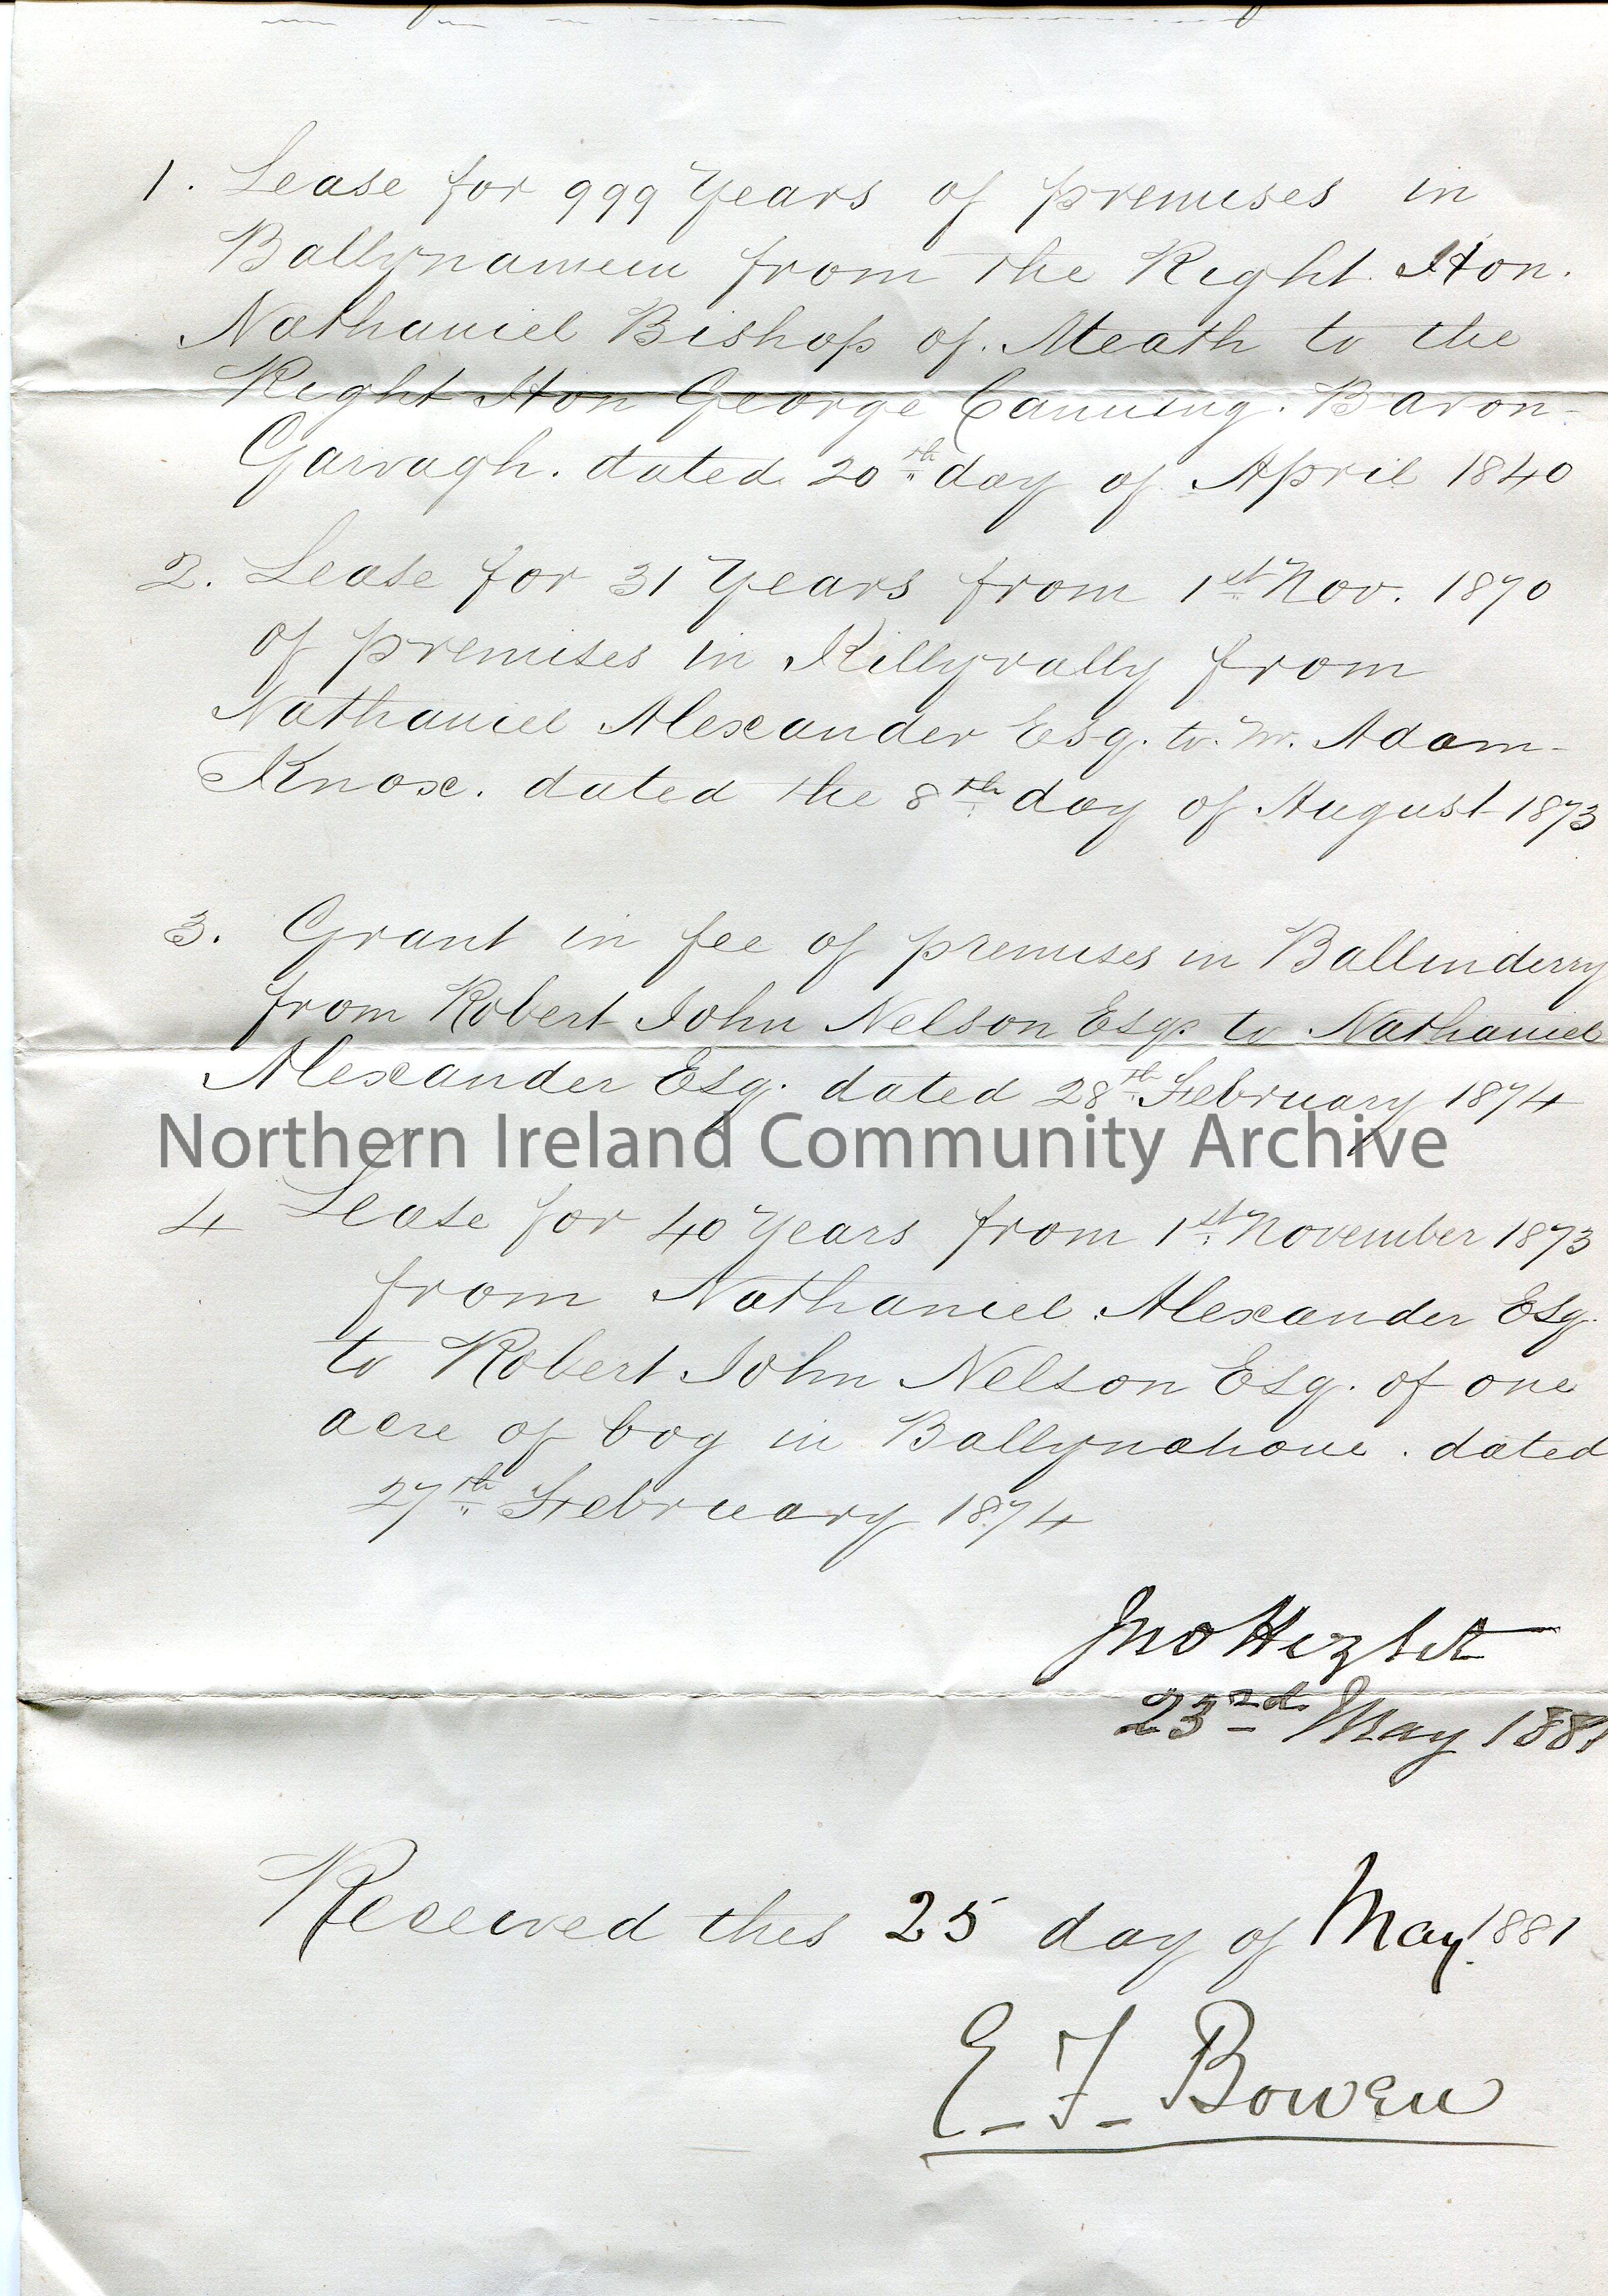 1. Lease for 999 Years of premises in
Ballynameen from the Right Hon.
Nathaniel Bishop of Meath to the
Right Hon George Canning. Baron
Garvagh. dated 20th day of April 1840
2. Lease for 31 Years from 1st Nov. 1870
of premises in Killyvally from
Nathaniel Alexander Esq. to Mr. Adam
Knox. dated the 8th day of August 1873
3. Grant in fee of premises in Ballinderry
from Robert John Nelson Esq. to Nathaniel
Alexander Esq. dated 28th February 1874
Northern Ireland Community Archive
4 Lease for 40 Years from 1st November 1873
from Nathaniel Alexander Esq.
to Robert John Nelson Esq. of one
acre of bog in Ballynahone. dated
27th February 1874
Jno Hezlet
23rd May 1881
Received this 25 day of May 1881
E. F. Bowen